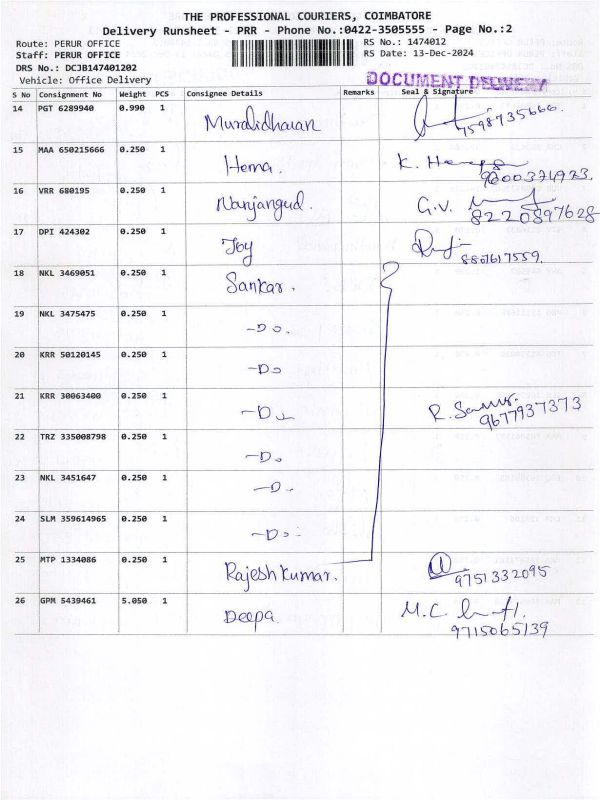 THE PROFESSIONAL COURIERS, COIMBATORE
Delivery Runsheet - PRR - Phone No.:0422-3505555 - Page No.:2
Route: PERUR OFFICE RS No.: 1474012
Staff: PERUR OFFICE RS Date: 13-Dec-2024
DRS No.: DCJB147401202
DOCUMENT DELIVERY
Vehicle: Office Delivery
S No Consignment No Weight PCS Consignee Details Remarks Seal & Signature
14 PGT 6289940 0.990 1 Muralidharan 7598735666.
15 MAA 650215666 0.250 1 Hema. K.
16 VRR 680195 0.250 1 Nanjangud. G.V. 8220897628
17 DPI 424302 0.250 1 Joy 8807617559.
18 NKL 3469051 0.250 1 Sankar.
19 NKL 3475475 0.250 1 -Do.
20 KRR 50120145 0.250 1 -Do
21 KRR 30063400 0.250 1 -Do R. 9677937373
22 TRZ 335008798 0.250 1 -Do
23 NKL 3451647 0.250 1 -D-
24 SLM 359614965 0.250 1 -Do.
25 MTP 1334086 0.250 1 Rajesh Kumar. 9751332095
26 GPM 5439461 5.050 1 Deepa. M.C. 9715065139